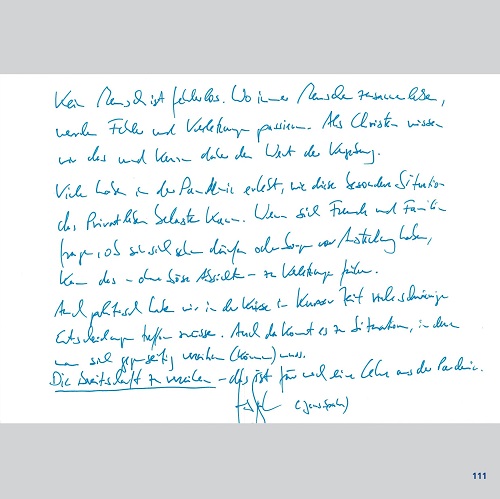 Kein Mensch ist fehlerlos. Wo immer Menschen zusammenleben,
werden Fehler und Verletzungen passieren. Als Christen wissen
wir das und kennen daher den Wert der Vergebung.
Viele haben in der Pandemie erlebt, wie diese besondere Situation
das Privatleben belasten kann. Wenn sich Freunde und Familien
fragen, ob sie sich sehen dürfen oder Sorge vor Ansteckung haben,
kann das - ohne böse Absichten - zu Verletzungen führen.
Auch politisch haben wir in der Krise in kurzer Zeit viele schwierige
Entscheidungen treffen müssen. Auch da kommt es zu Situationen, in denen
man sich gegenseitig verzeihen (können) muss.
Die Bereitschaft zu verzeihen - das ist für mich eine Lehre aus der Pandemie.
(Jens Spahn)
111